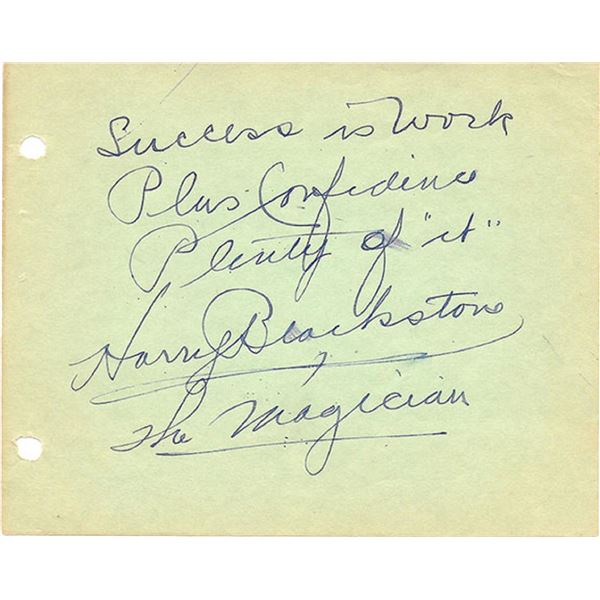 Success is Work
Plus Confidence
Plenty of "it"
Harry Blackstone
The Magician